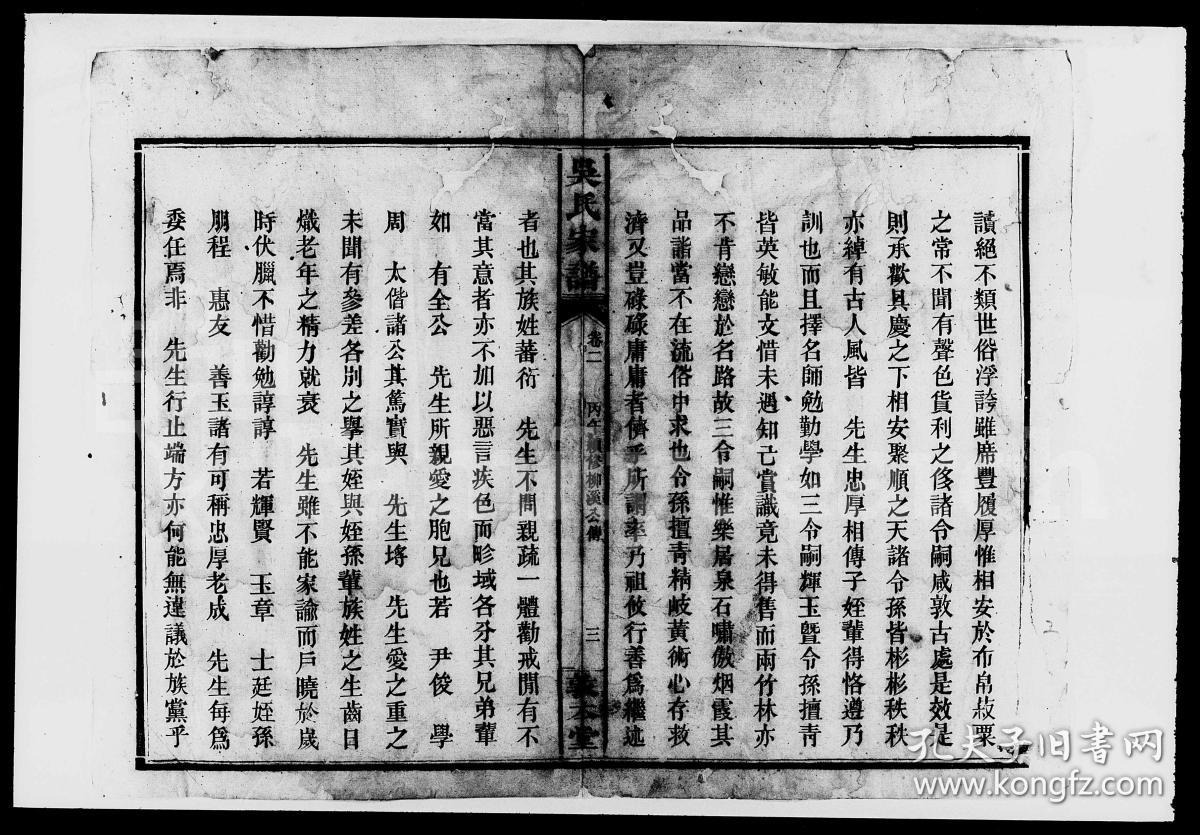 讀絕不類世俗浮誇雖席豐履厚惟相安於布帛菽粟
之常不聞有聲色貨利之侈諸令嗣咸敦古處是效是
則承歡具慶之下相安聚順之天諸令孫皆彬彬秩秩
亦綽有古人風皆 先生忠厚相傳子姪輩得恪遵乃
訓也而且擇名師勉勤學如三令嗣輝玉暨令孫擅青
皆英敏能文惜未遇知己賞識竟未得售而兩竹林亦
不肯戀戀於名路故三令嗣惟樂居泉石嘯傲烟霞其
品詣當不在流俗中求也令孫擅青精岐黃術心存救
濟又豈碌碌庸庸者儕乎所謂率乃祖攸行善為繼述
吳氏家譜
卷二
丙午 修柳溪公傳
三
堂
者也其族姓蕃衍 先生不問親疏一體勸戒閒有不
當其意者亦不加以惡言疾色而畛域各分其兄弟輩
如 有全公 先生所親愛之胞兄也若 尹俊 學
周 太偕諸公其篤實與 先生埒 先生愛之重之
未聞有參差各別之舉其姪與姪孫輩族姓之生齒日
熾老年之精力就衰 先生雖不能家諭而戶曉於歲
時伏臘不惜勸勉諄諄 若輝賢 玉章 士廷姪孫
朋程 惠友 善玉諸有可稱忠厚老成 先生每為
委任焉非 先生行止端方亦何能無違議於族黨乎
2
孔夫子旧书网
www.kongfz.com